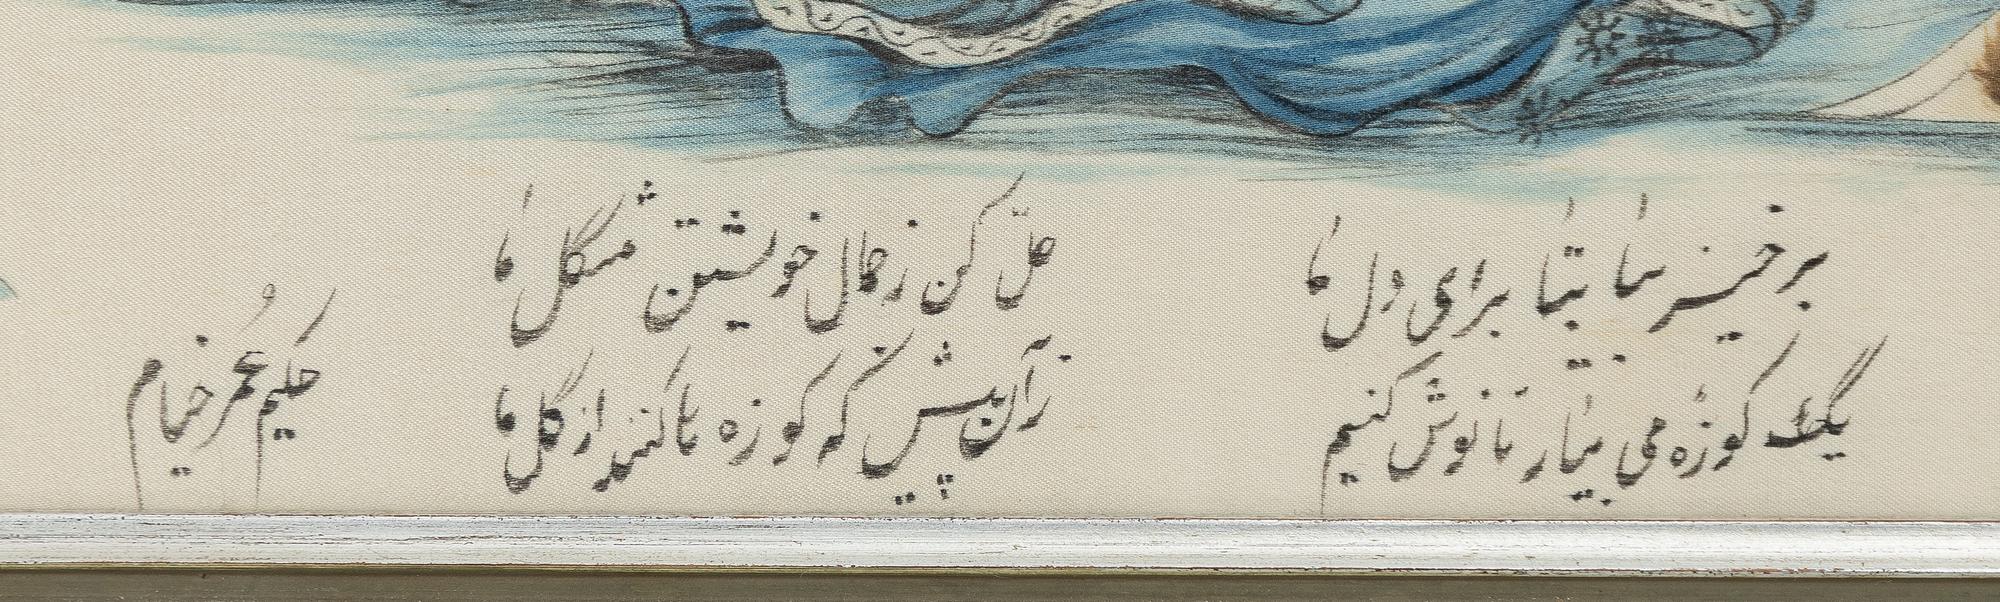 برخیز بتا بیا برای دل ما
حل کن ز جمال خویشتن مشکل ما
یک کوزهٔ می بیار تا نوش کنیم
زآن پیش که کوزه‌ها کنند از گل ما
حکیم عمر خیام